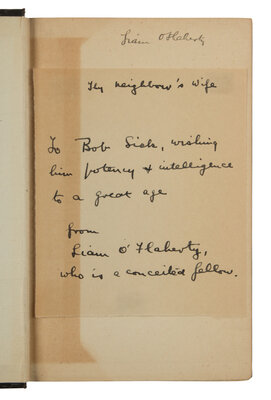 Liam O'Flaherty
Thy neighbour's wife
To Bob
, wishing
him potency & intelligence
to a great age
from
Liam O'Flaherty,
who is a conceited fellow.